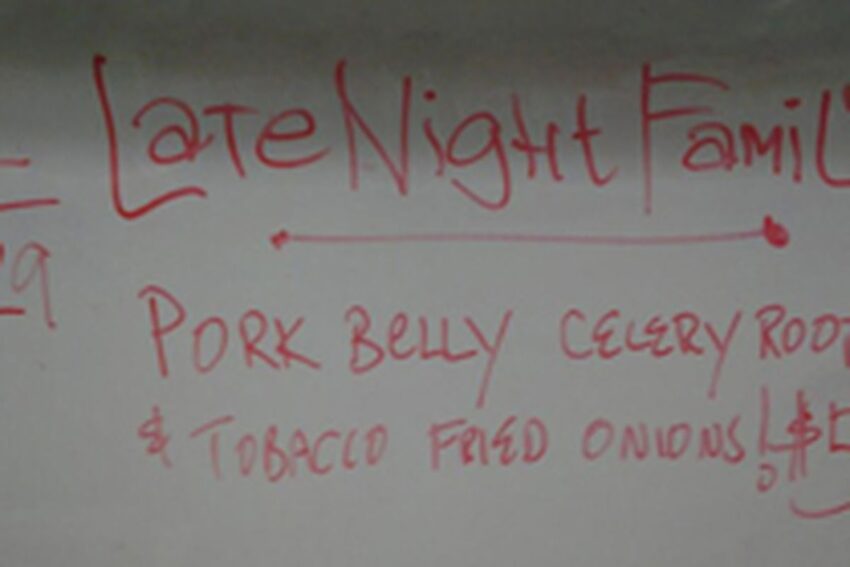 Late Night Famil
29
Pork Belly Celery Root
& Tobacco Fried Onions! $5